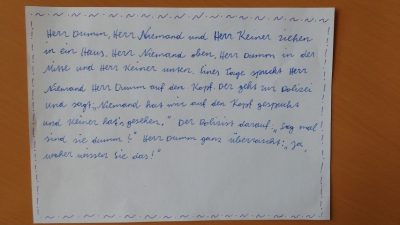 Herr Dumm, Herr Niemand und Herr Keiner ziehen
in ein Haus. Herr Niemand oben, Herr Dumm in der
Mitte und Herr Keiner unten. Eines Tages spuckt Herr
Niemand Herr Dumm auf den Kopf. Der geht zur Polizei
und sagt: „Niemand hat mir auf den Kopf gespuckt
und Keiner hat's gesehen." Der Polizist darauf: „Sag mal
sind sie dumm?" Herr Dumm ganz überrascht: „Ja,
woher wissen Sie das!"